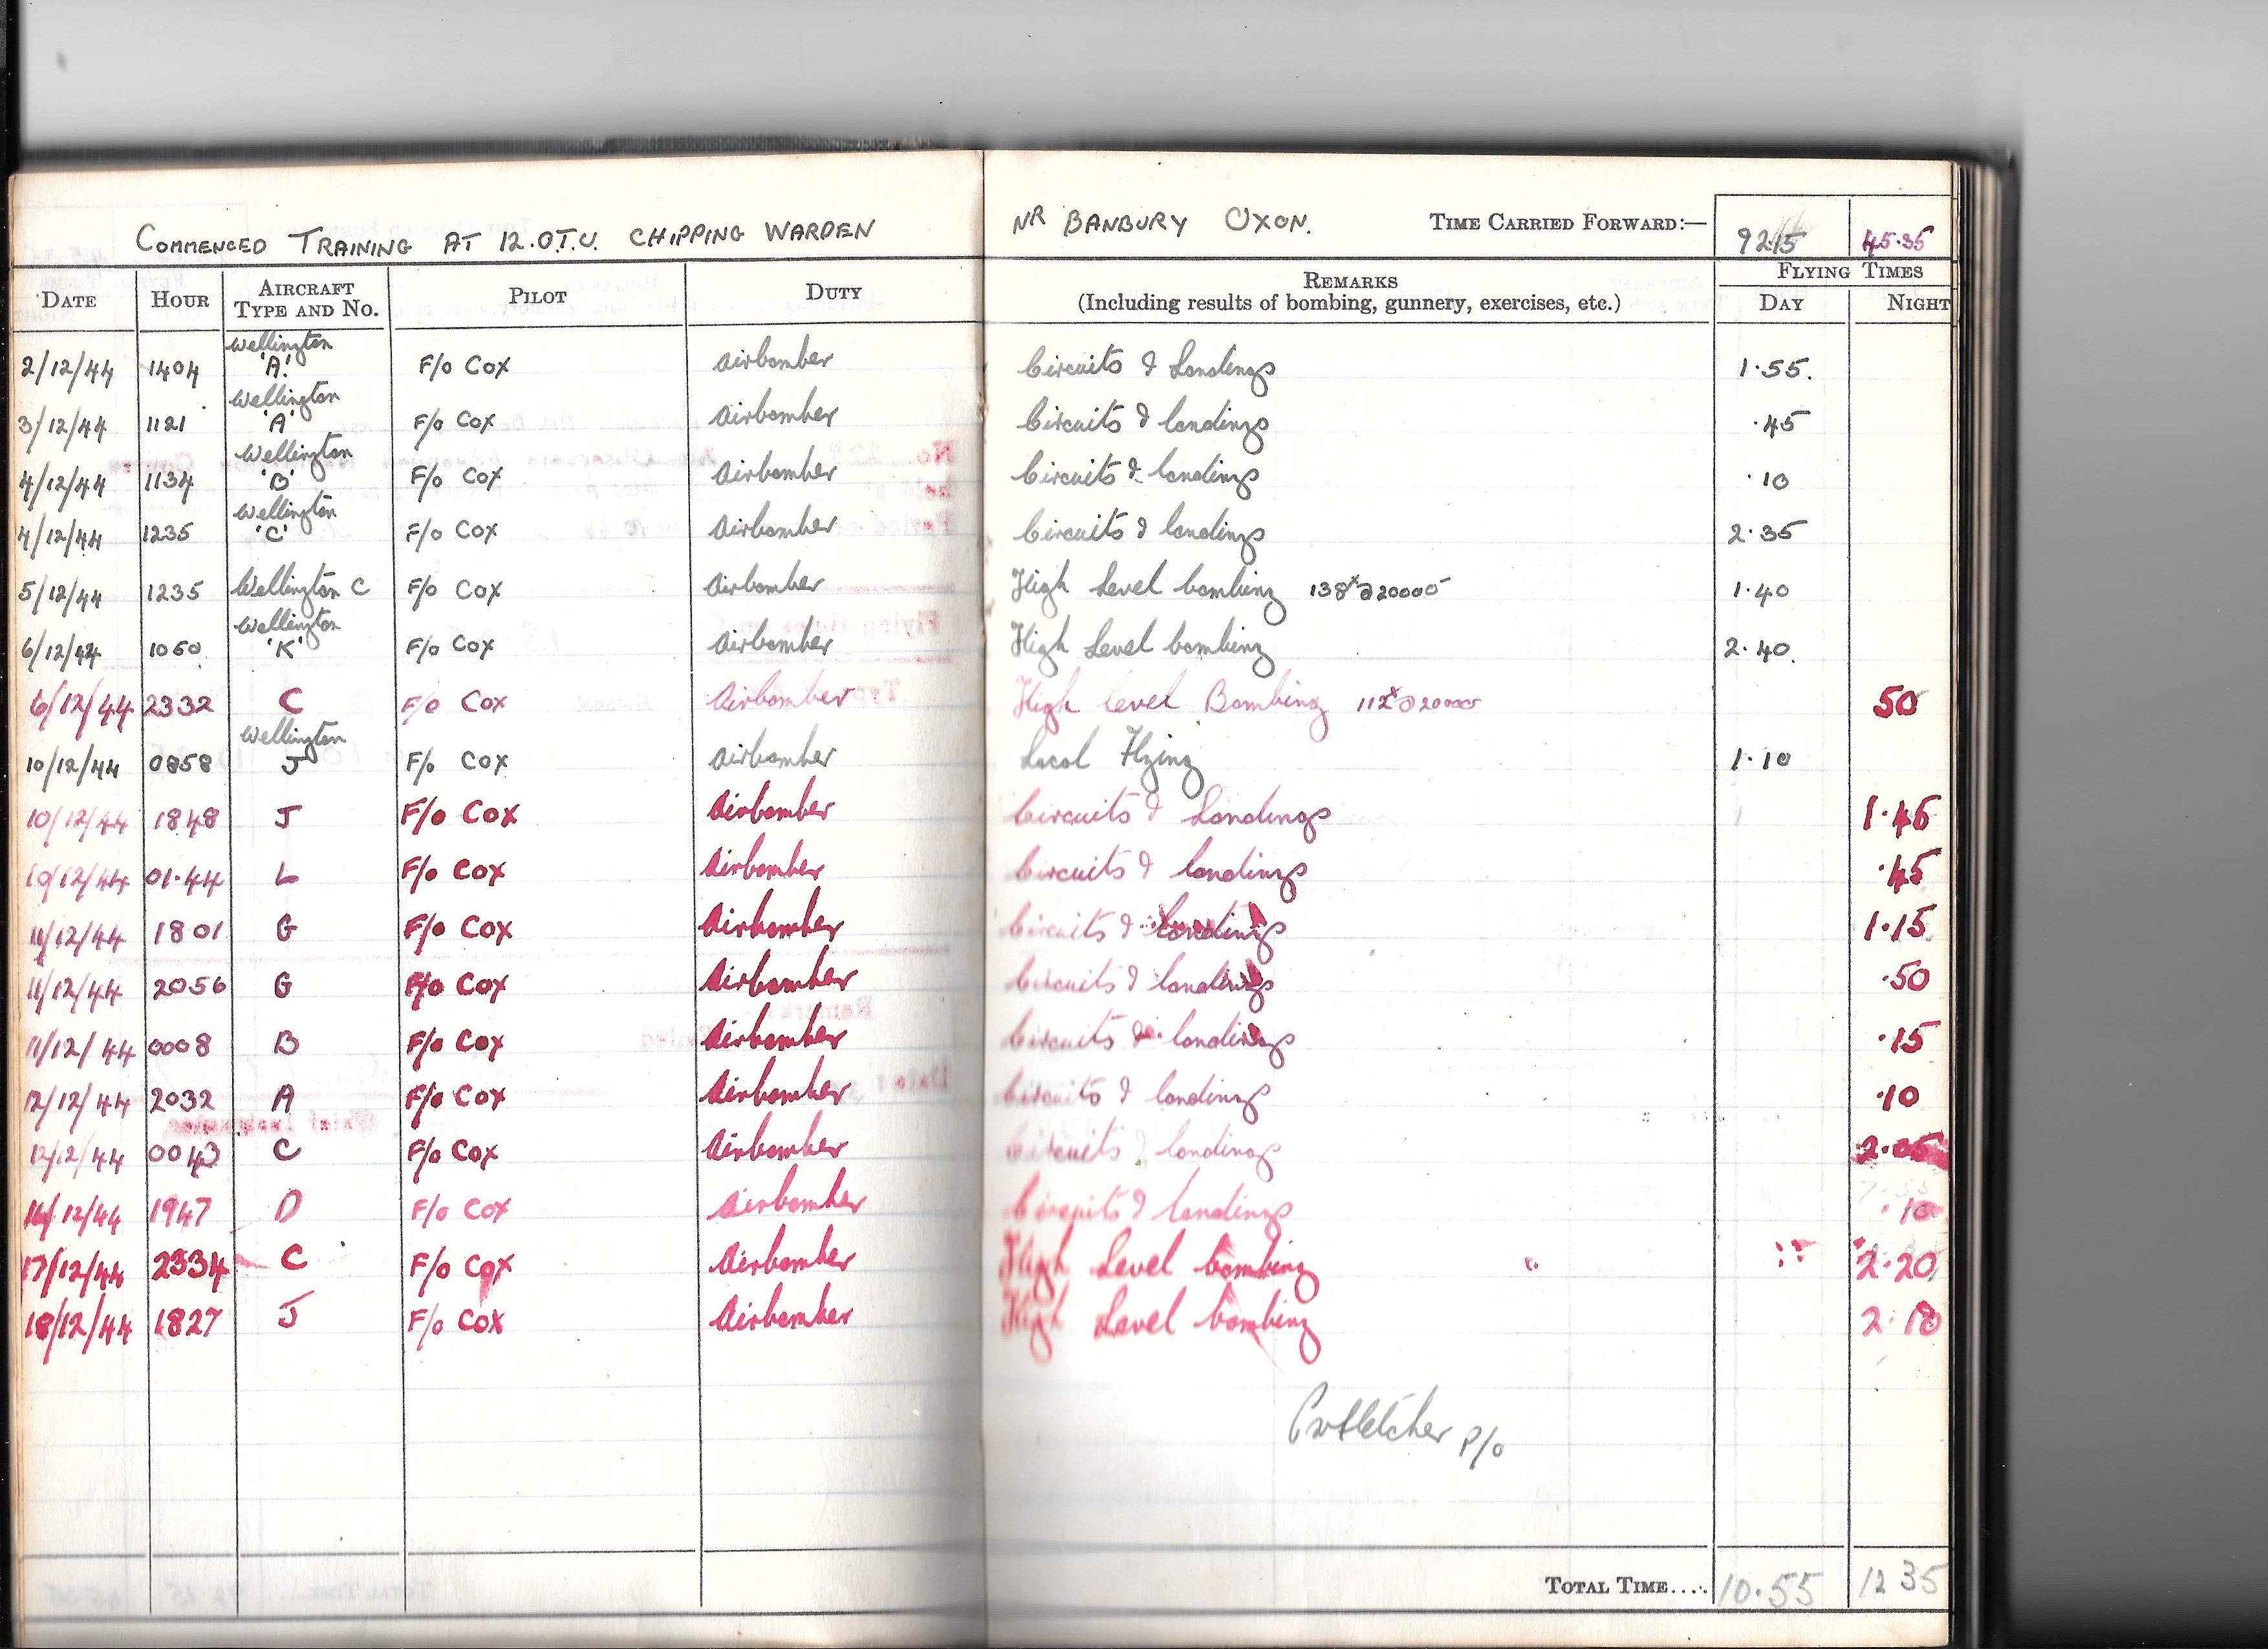 COMMENCED TRAINING AT 12.O.T.U. CHIPPING WARDEN NR BANBURY OXON. TIME CARRIED FORWARD:— 92.15 45.35
DATE HOUR AIRCRAFT TYPE AND NO. PILOT DUTY REMARKS (Including results of bombing, gunnery, exercises, etc.) FLYING TIMES DAY NIGHT
2/12/44 1404 Wellington 'A' F/o Cox Airbomber Circuits & Landings 1.55.
3/12/44 1121 Wellington 'A' F/o Cox Airbomber Circuits & landings .45
4/12/44 1134 Wellington 'B' F/o Cox Airbomber Circuits & landings .10
4/12/44 1235 Wellington 'C' F/o Cox Airbomber Circuits & landings 2.35
5/12/44 1235 Wellington C F/o Cox Airbomber High Level bombing 138x @ 20000 1.40
6/12/44 1050 Wellington 'K' F/o Cox Airbomber High Level bombing 2.40.
6/12/44 2332 C F/o Cox Airbomber High level Bombing 112x @ 20000 50
10/12/44 0858 Wellington J F/o Cox Airbomber Local Flying 1.10
10/12/44 1848 J F/o Cox Airbomber Circuits & Landings 1.45
10/12/44 01.44 L F/o Cox Airbomber Circuits & landings .45
11/12/44 1801 G F/o Cox Airbomber Circuits & landings 1.15
11/12/44 2056 G F/o Cox Airbomber Circuits & landings .50
11/12/44 0008 B F/o Cox Airbomber Circuits & landings .15
12/12/44 2032 A F/o Cox Airbomber Circuits & landings .10
12/12/44 0043 C F/o Cox Airbomber Circuits & landings 2.05
14/12/44 1947 D F/o Cox Airbomber Circuits & landings .10
17/12/44 2334 C F/o Cox Airbomber High Level bombing 2.20
18/12/44 1827 J F/o Cox Airbomber High Level bombing 2.10
Fletcher P/o
TOTAL TIME.... 10.55 12 35